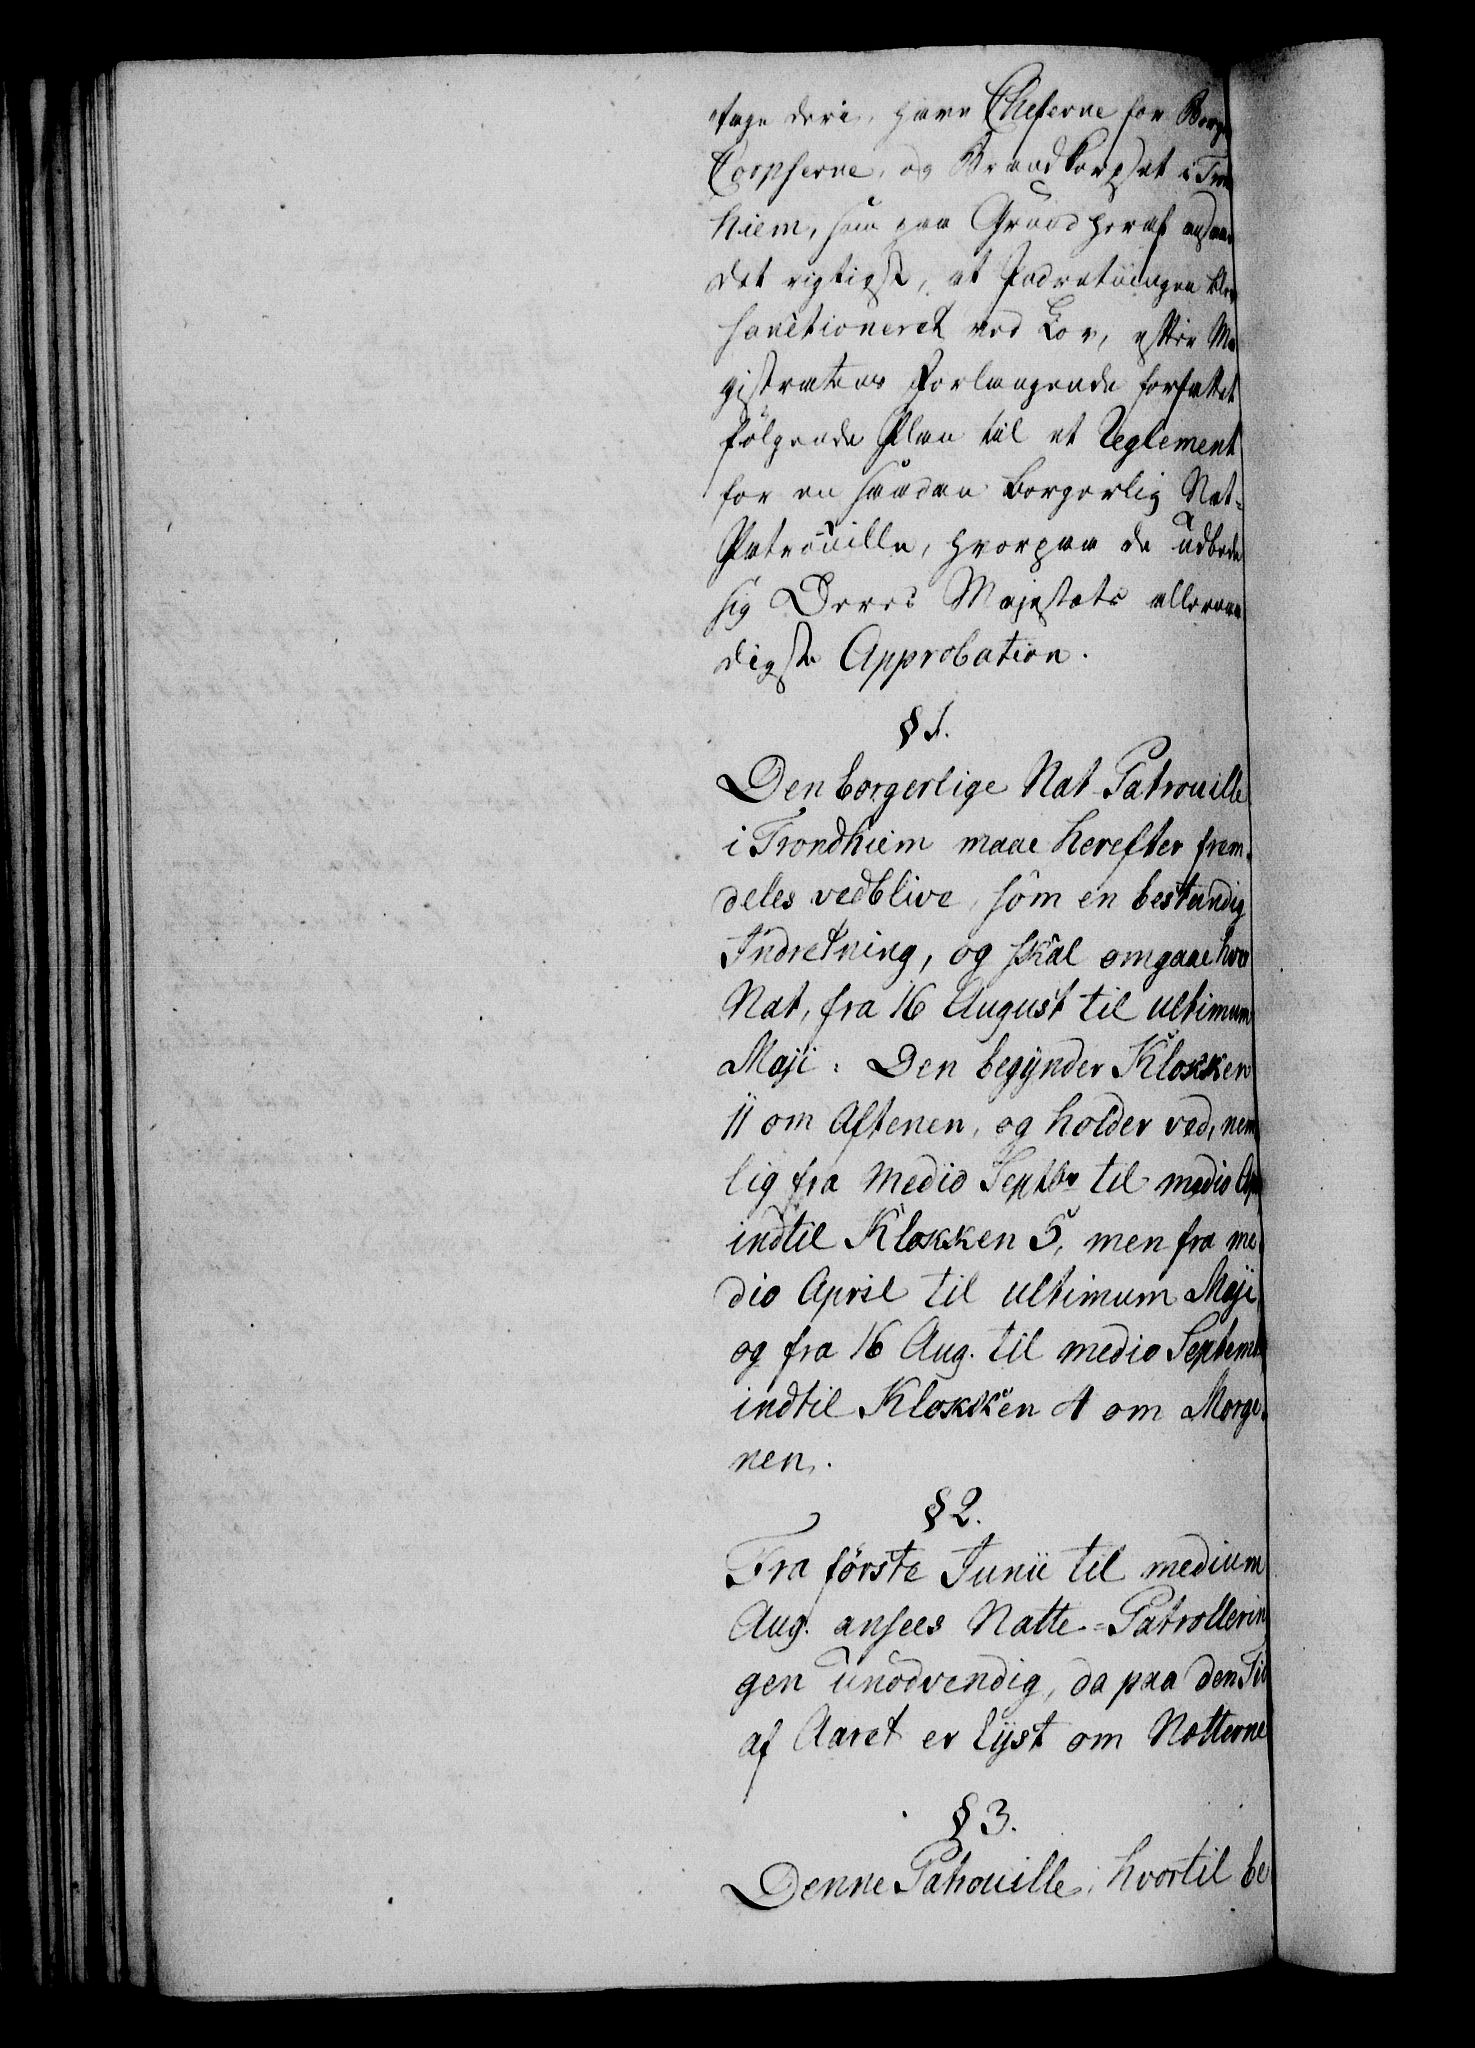 tage deri, have Cheferne for Borger
Corpserne, og Brandkorpset i Tron
hiem, som paa Grund heraf ansaae
det rigtigst, at Indretningen blev
sanctioneret ved Lov, efter Ma
gistratens Forlangende forfattet
følgende Plan til et Reglement
for en saadan borgerlig Nat-
Patrouille, hvorpaa de udbede
sig Deres Majestæts allernaa
digste Approbation.
§ 1.
Den borgerlige Nat-Patrouille
i Trondhiem maae herefter frem-
deles vedblive, som en bestandig
Indretning, og skal omgaae hver
Nat, fra 16 August til ultimum
Maji. Den begÿnder Klokken
11 om Aftenen, og holder ved, nem
lig fra medio Septbr til medio Apr
indtil Klokken 5, men fra me
dio April til ultimum Maji
og fra 16 Aug. til medio Septemb
indtil Klokken 4 om Morge-
nen.
§ 2.
Fra første Junii til medium
Aug. ansees Natte-Patrollerin
gen unødvendig, da paa den Tid
af Aaret er lÿst om Nætterne
§ 3.
Denne Patrouille, hvortil be